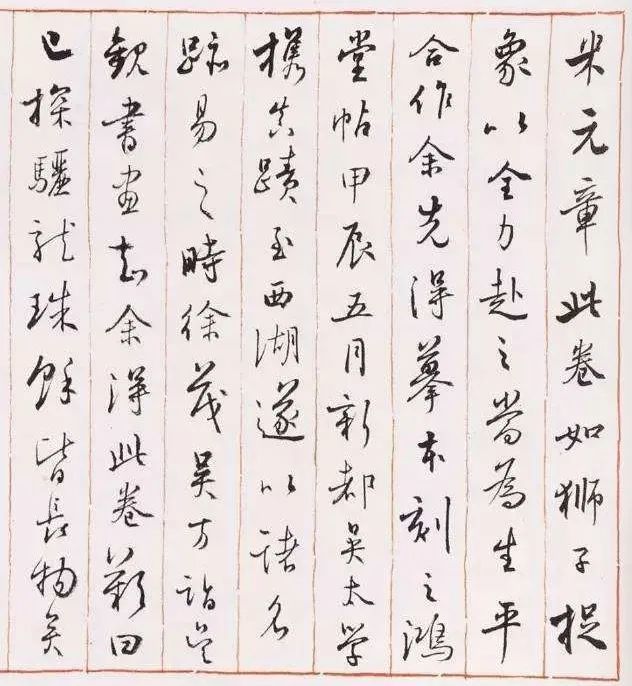 米元章此卷如狮子捉
象以全力赴之當為生平
合作余先得摹本刻之鴻
堂帖甲辰五月新都吳太學
携真蹟至西湖遂以諸名
跡易之時徐茂吳方詣吳
觀書畫知余得此卷歎曰
已探驪龍珠餘皆長物矣